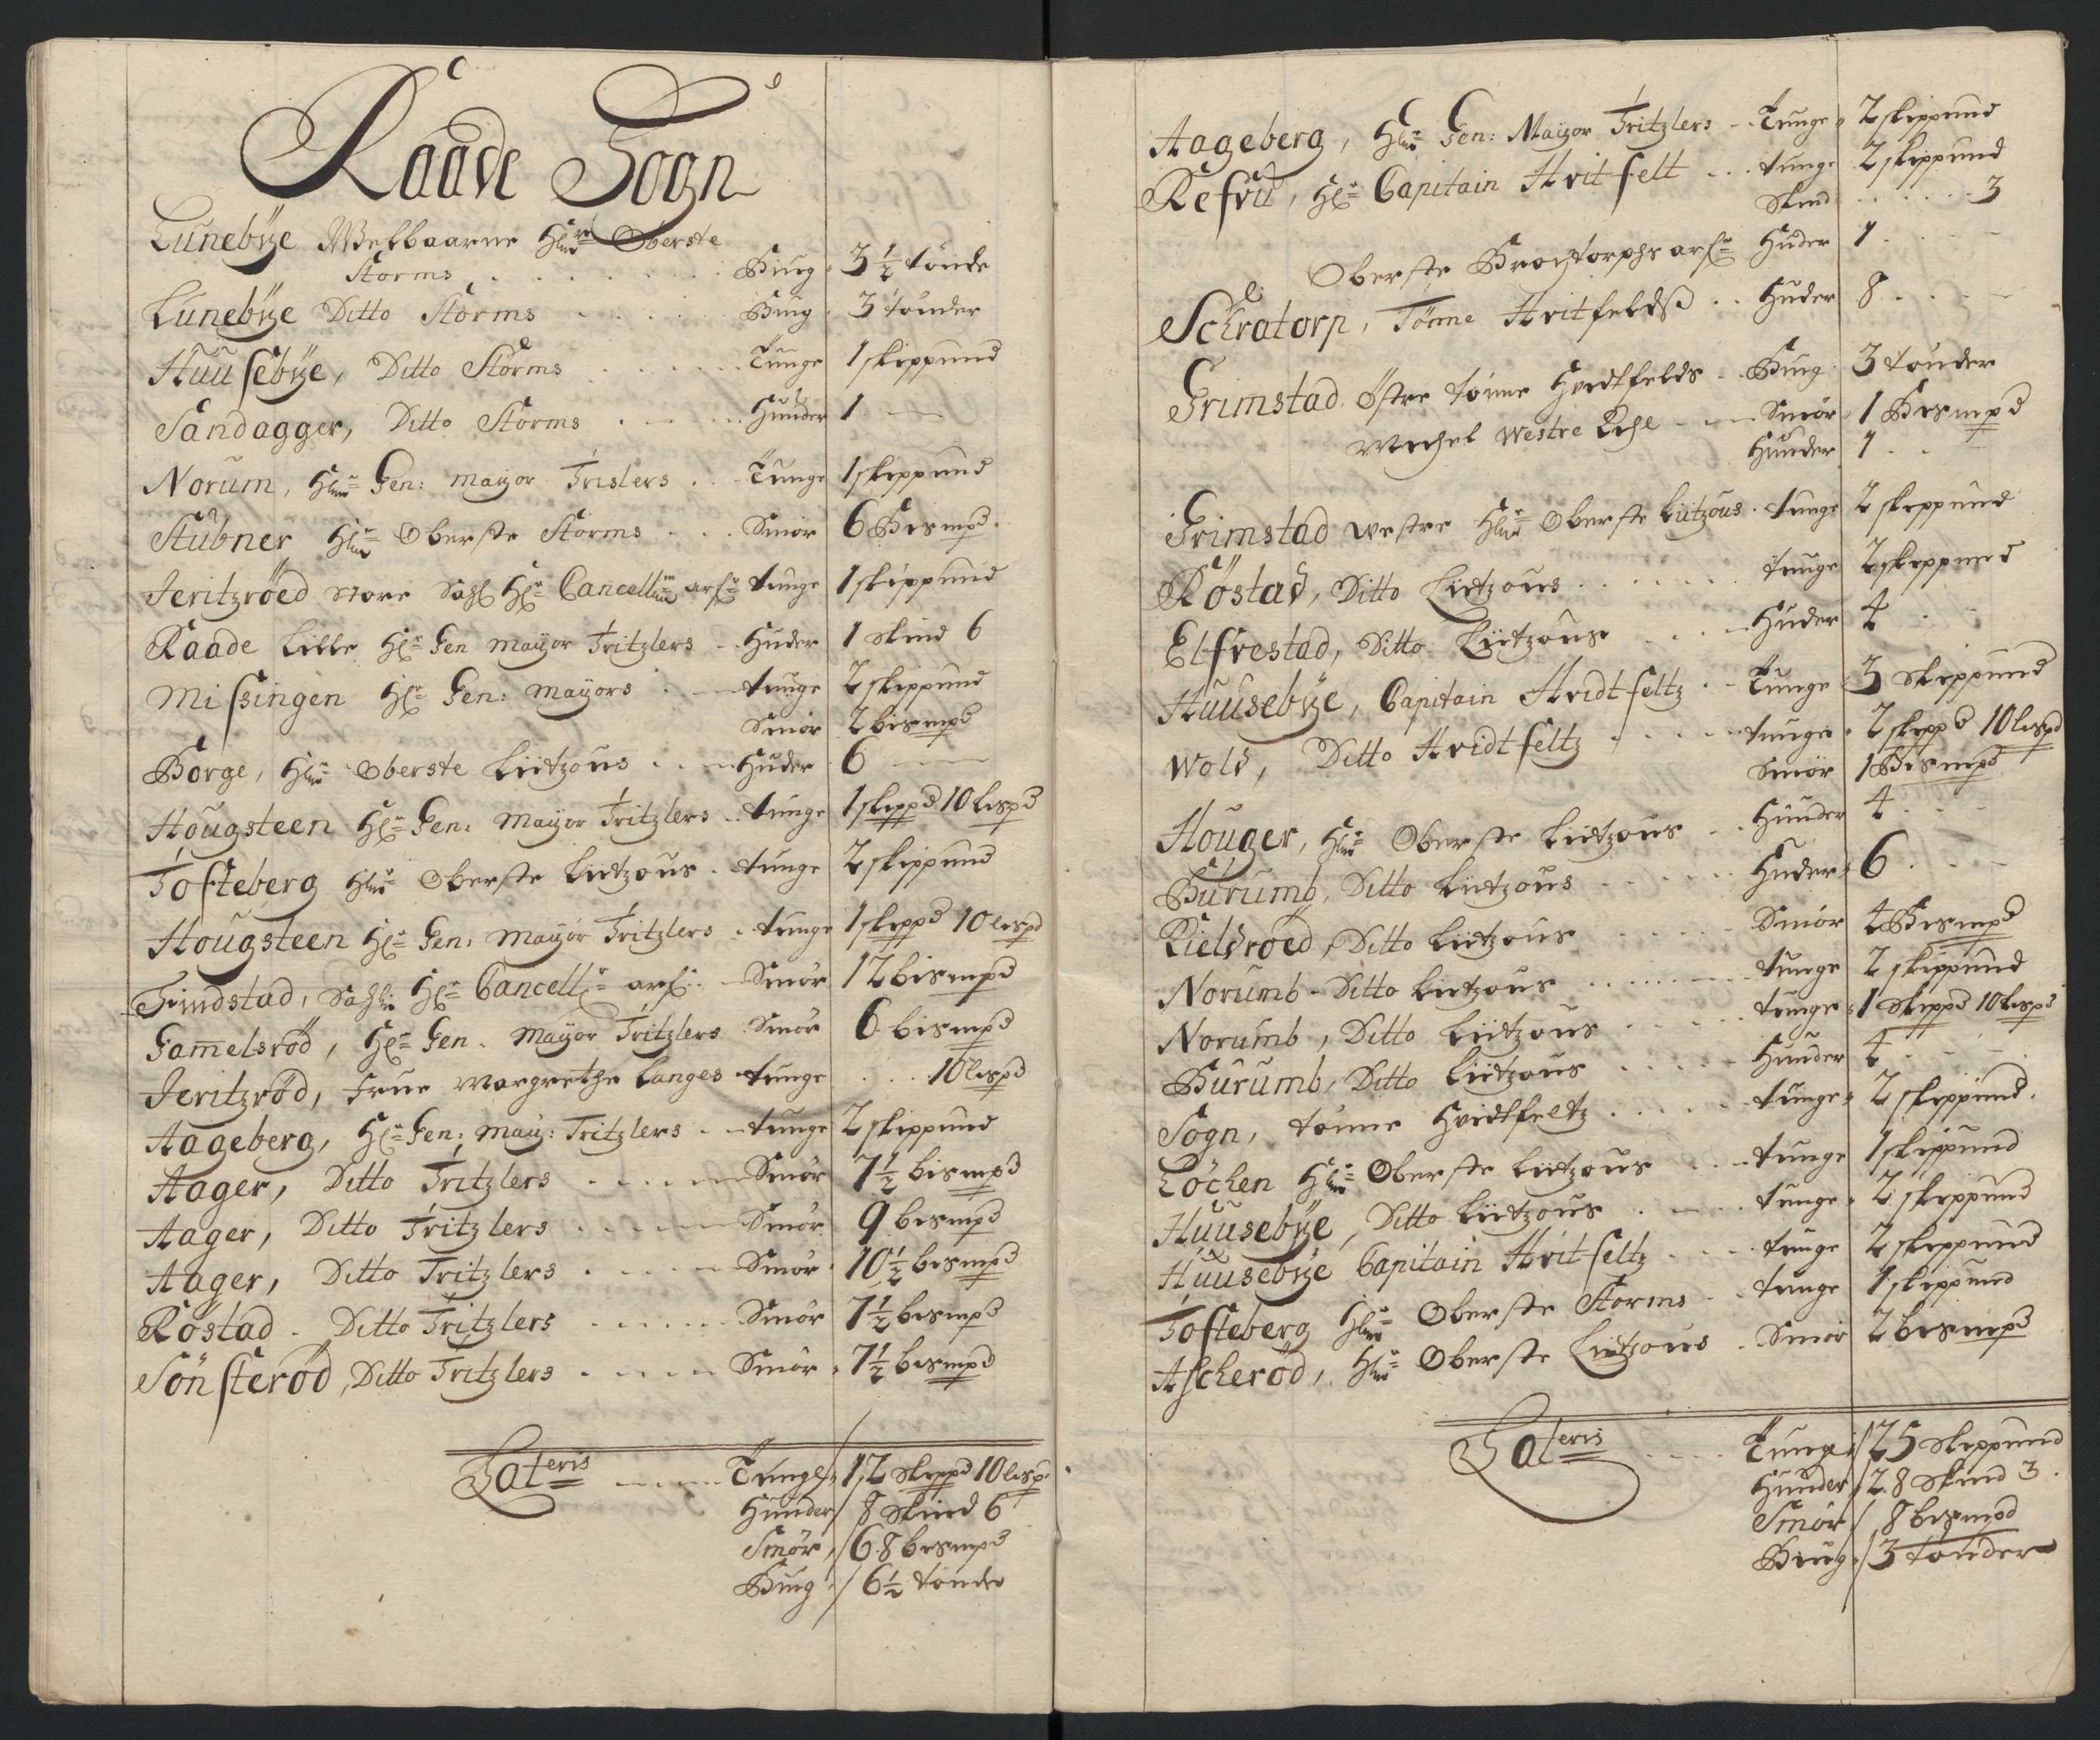 Raade Sogn
Lunebÿe Welbaarne Hr Oberste
Storms . . . . . . . Biug 3 1/2 tönde
Lunebÿe Ditto Storms . . . . Biug 3 tönder
Huusebÿe, Ditto Storms . . . . . . Tunge 1 skippund
Sandagger, Ditto Storms . . . . Huuder 1 —
Norum, Hr Gen: mayor Trislers . . . Tunge 1 skippund
Stubner Hr Oberste Storms . . . Smör 6 Bismpd.
Jeritzröed store Sahl Hr Cancell arf tunge 1 skippund
Raade Lille Hr Gen mayor Tritzlers . . Huder 1 skind 6
Missingen Hr Gen: mayors . . . tunge 2 skippund
Smör 2 bismpd
Borge, Hr Oberste Lützous . . . Huder 6 —
Hougsteen Hr Gen: mayor Tritzlers . . tunge 1 skippd 10 lispd
Tofteberg Hr Oberste Lützous . tunge 2 skippund
Hougsteen Hr Gen: mayor Tritzlers . tunge 1 skippd 10 lispd
Findstad, Sahl Hr Cancell arf: Smör 12 bismpd
Gamelsröd, Hr Gen. Mayor Tritzlers Smör 6 bismpd
Jeritzröd, Frue Margrethe Langes tunge . . . 10 lispd
Aageberg, Hr Gen: may: Tritzlers . . tunge 2 skippund
Aager, Ditto Tritzlers . . . . Smör 7 1/2 bismpd
Aager, Ditto Tritzlers . . . . Smör 9 bismpd
Aager, Ditto Tritzlers . . . . Smör 10 1/2 bismpd
Röstad . Ditto Tritzlers . . . . . Smör 7 1/2 bismpd
Sönsteröd, Ditto Tritzlers . . . . Smör 7 1/2 bismpd
Lateris . . . Tunge 12 skippd 10 lispd
Huuder 8 skind 6
Smör 68 bismpd
Biug 6 1/2 tönde
Aageberg, Hr Gen: Mayor Tritzlers . . Tunge 2 skippund
Refvü, Hr Capitain Hvitfelt . . . tunge 2 skippund
Skind . . . . . . 3
Oberste Brochtorphs arf Huder 1 . . —
Schratorp, Tönne Hvitfeldss . . Huder 8 . . . —
Grimstad Östre tönne Hvidtfelds . . Biug 3 tönder
Westre — Smör 1 Bismpd
Huuder 1 . . —
Grimstad westre Hr Oberste Lützous . tunge 2 skippund
Röstad, Ditto Lützous . . . . . . . tunge 2 skippund
Elfvestad, Ditto Lützous . . . Huder 4 . . —
Huusebÿe, Capitain Hvidtfeltz . . Tunge 3 skippund
Wold, Ditto Hvidtfeltz . . . . . tunge 2 skippd 10 lispd
Smör 1 Bismpd
Houger, Hr Oberste Lützous . . Huuder 4 . . —
Burumb, Ditto Lützous . . . . . . Huder 6 . . —
Kieldröed, Ditto Lützous . . . . Smör 4 Bismpd
Norumb . Ditto Lützous . . . . . tunge 2 skippund
Norumb, Ditto Lützous . . . . . tunge 1 skippd 10 lispd
Burumb, Ditto Lützous . . . . . Huuder 4 . . . —
Sogn, tönne Hvidtfeltz . . . . . tunge 2 skippund.
Löchen Hr Oberste Lützous . . . tunge 1 skippund
Huusebÿe, Ditto Lützous . . . tunge 2 skippund
Huusebÿe Capitain Hvitfeltz . . . . tunge 2 skippund
Tofteberg Hr Oberste Storms . . tunge 1 skippund
Ascheröd, Hr Oberste Lützous . Smör 2 bismpd
Lateris . . . Tunge 25 skippund
Huuder 28 skind 3.
Smör 8 bismpd
Biug 3 tönder